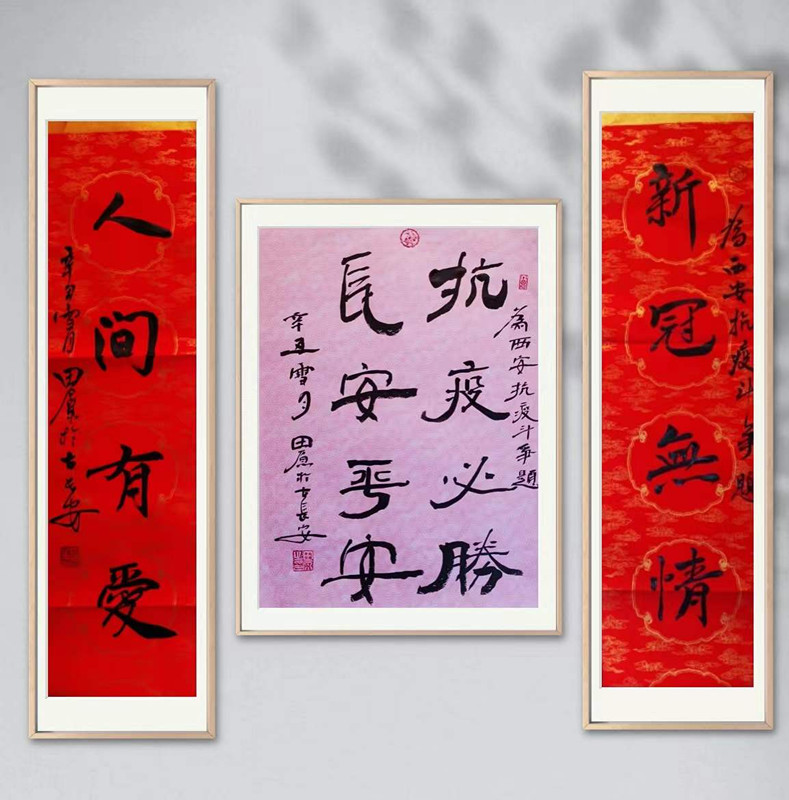 為西安抗疫斗争題
新冠無情
為西安抗疫斗争題
抗疫必勝
長安平安
辛丑雪月 田原於古長安
人間有愛
辛丑雪月 田原於古長安